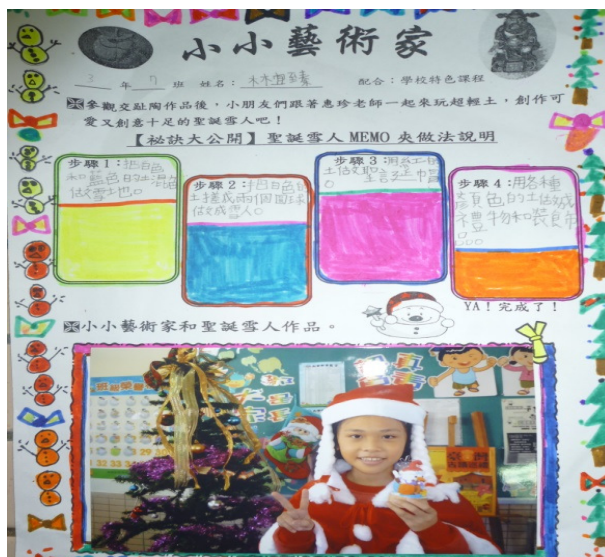 小小藝術家
3 年 7 班 姓名：林 配合：學校特色課程
參觀交趾陶作品後，小朋友們跟著惠珍老師一起來玩超輕土，創作可
愛又創意十足的聖誕雪人吧！
【祕訣大公開】聖誕雪人 MEMO 夾做法說明
步驟1：把白色
和藍色的土混
做雪地。
步驟2：把白色的
土搓成兩個圓球
做成雪人。
步驟3：用紅
土做
聖誕帽
。
步驟4：用各種
顏色的土做成
禮物和裝飾
。
YA！完成了！
小小藝術家和聖誕雪人作品。